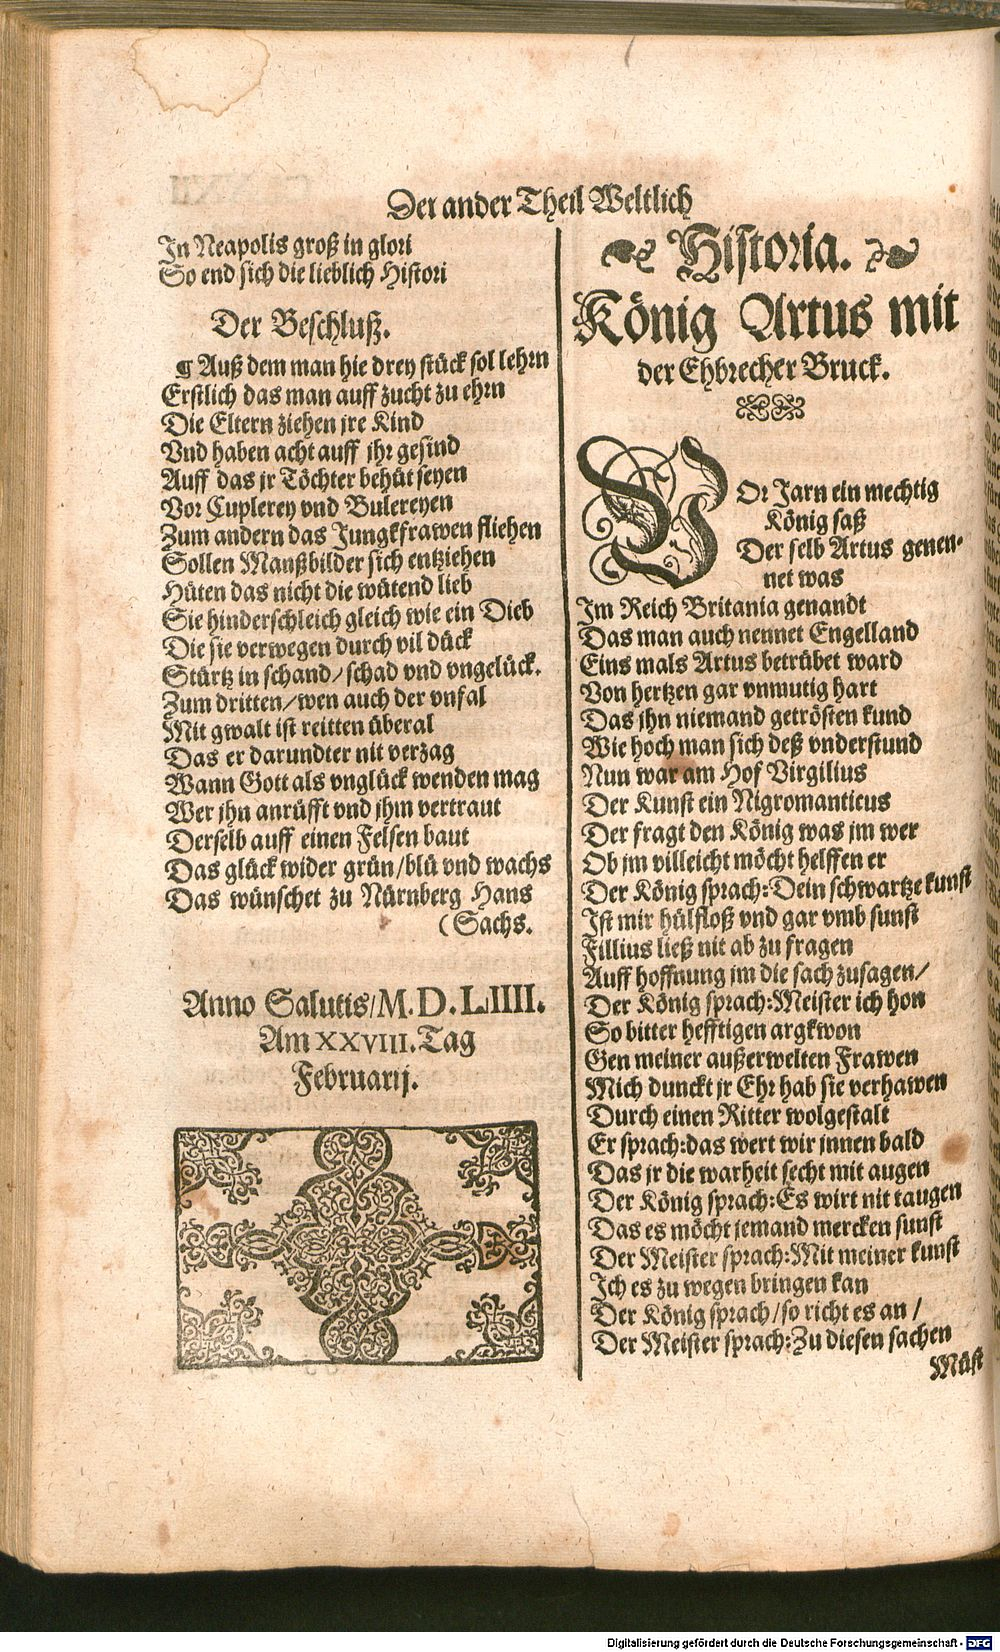 Der ander Theil Weltlich
In Neapolis groß in glori
So end sich die lieblich Histori
Der Beschluß.
¶ Auß dem man hie drey stück sol lehrn
Erstlich das man auff zucht zu ehrn
Die Eltern ziehen jre Kind
Vnd haben acht auff jhr gesind
Auff das jr Töchter behüt seyen
Vor Cuplerey vnd Bulereyen
Zum andern das Jungkfrawen fliehen
Sollen Manßbilder sich entziehen
Hüten das nicht die wütend lieb
Sie hinderschleich gleich wie ein Dieb
Die sie verwegen durch vil dück
Stürtz in schand/schad vnd vngelück.
Zum dritten/wen auch der vnfal
Mit gwalt ist reitten überal
Das er darundter nit verzag
Wann Gott als vnglück wenden mag
Wer jhn anrüfft vnd jhm vertraut
Derselb auff einen Felsen baut
Das glück wider grün/blü vnd wachs
Das wünschet zu Nürnberg Hans
(Sachs.
Anno Salutis/M.D.LIIII.
Am XXVIII. Tag
Februarij.
Historia.
König Artus mit
der Ehbrecher Bruck.
VOr Jarn ein mechtig
König saß
Der selb Artus genen-
net was
Im Reich Britania genandt
Das man auch nennet Engelland
Eins mals Artus betrübet ward
Von hertzen gar vnmutig hart
Das jhn niemand getrösten kund
Wie hoch man sich deß vnderstund
Nun war am Hof Virgilius
Der Kunst ein Nigromanticus
Der fragt den König was jm wer
Ob jm villeicht möcht helffen er
Der König sprach:Dein schwartze kunst
Ist mir hülfloß vnd gar vmb sunst
Fillius ließ nit ab zu fragen
Auff hoffnung jm die sach zusagen/
Der König sprach:Meister ich hon
So bitter hefftigen argkwon
Gen meiner außerwelten Frawen
Mich dunckt jr Ehr hab sie verhawen
Durch einen Ritter wolgestalt
Er sprach:das wert wir jnnen bald
Das jr die warheit secht mit augen
Der König sprach:Es wirt nit taugen
Das es möcht jemand mercken sunst
Der Meister sprach:Mit meiner kunst
Ich es zu wegen bringen kan
Der König sprach/so richt es an/
Der Meister sprach:Zu diesen sachen
Müst
Digitalisierung gefördert durch die Deutsche Forschungsgemeinschaft - DFG